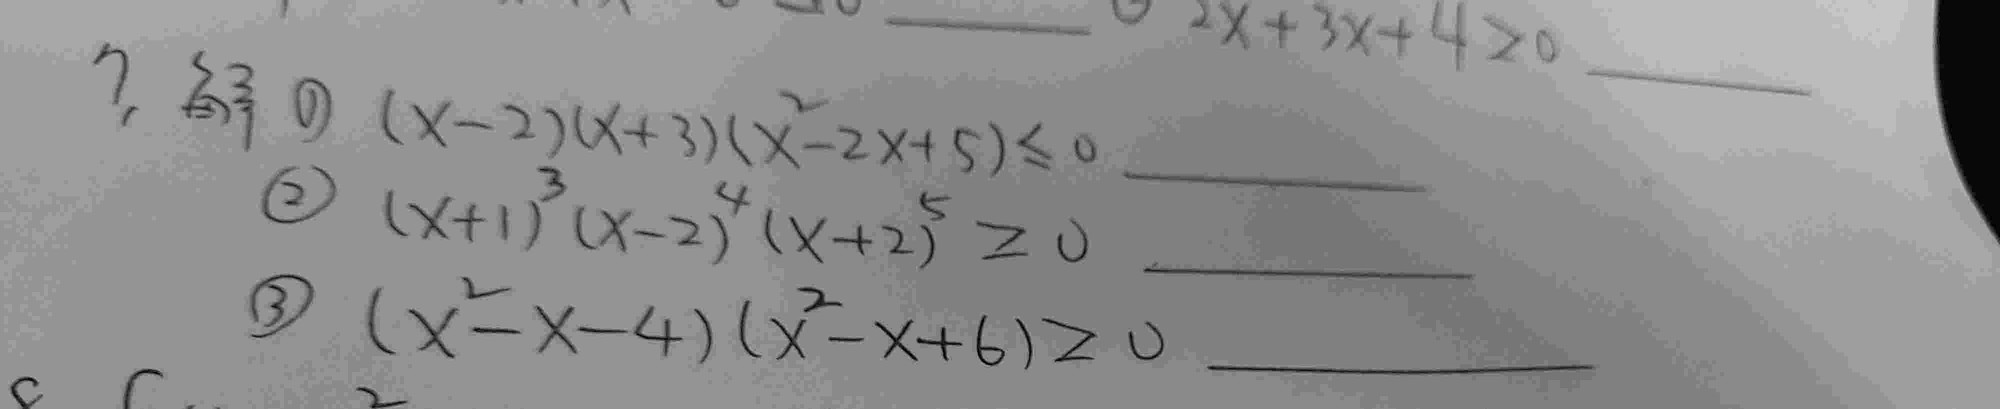 2x+3x+4≥0 ______
7. 解 ① (x-2)(x+3)(x²-2x+5)≤0 ______
② (x+1)³(x-2)⁴(x+2)⁵≥0 ______
③ (x²-x-4)(x²-x+6)≥0 ______